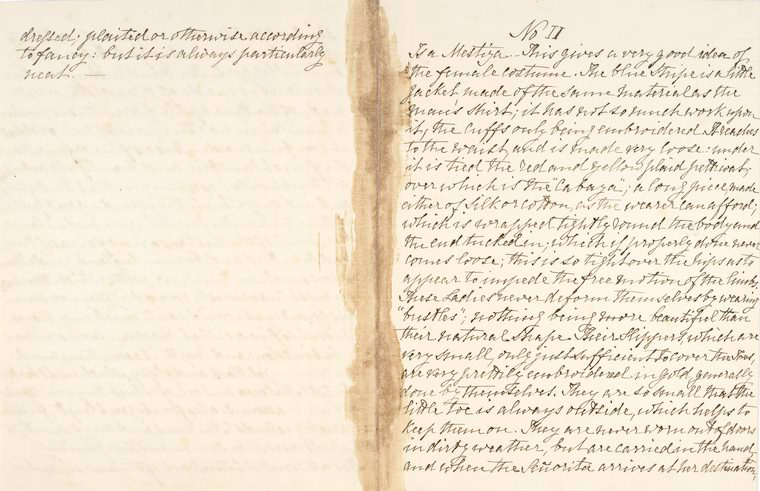 dressed; plaited or otherwise according
to fancy: but it is always particularly
neat. —
No II
Is a Mestiza. This gives a very good idea of
the female costume. The blue stripe is a little
jacket made of the same material as the
man's shirt; it has not so much work upon
it, the cuffs only being embroidered. It reaches
to the waist and is made very loose: under
it is tied the red and yellow plaid petticoat,
over which is the Cabaya; a long piece, made
either of silk or cotton, as the wearer can afford;
which is wrapped tightly round the body and
the end tucked in; which if properly done never
comes loose; this is so tight over the hips as to
appear to impede the free motion of the limbs.
These Ladies never deform themselves by wearing
"bustles"; nothing being more beautiful than
their natural shape. Their Slippers, which are
very small, only just sufficient to cover the toes,
are very prettily embroidered in gold, generally
done by themselves. They are so small that the
little toe is always outside, which helps to
keep them on. They are never worn out of doors
in dirty weather, but are carried in the hand,
and when the Señorita arrives at her destination,